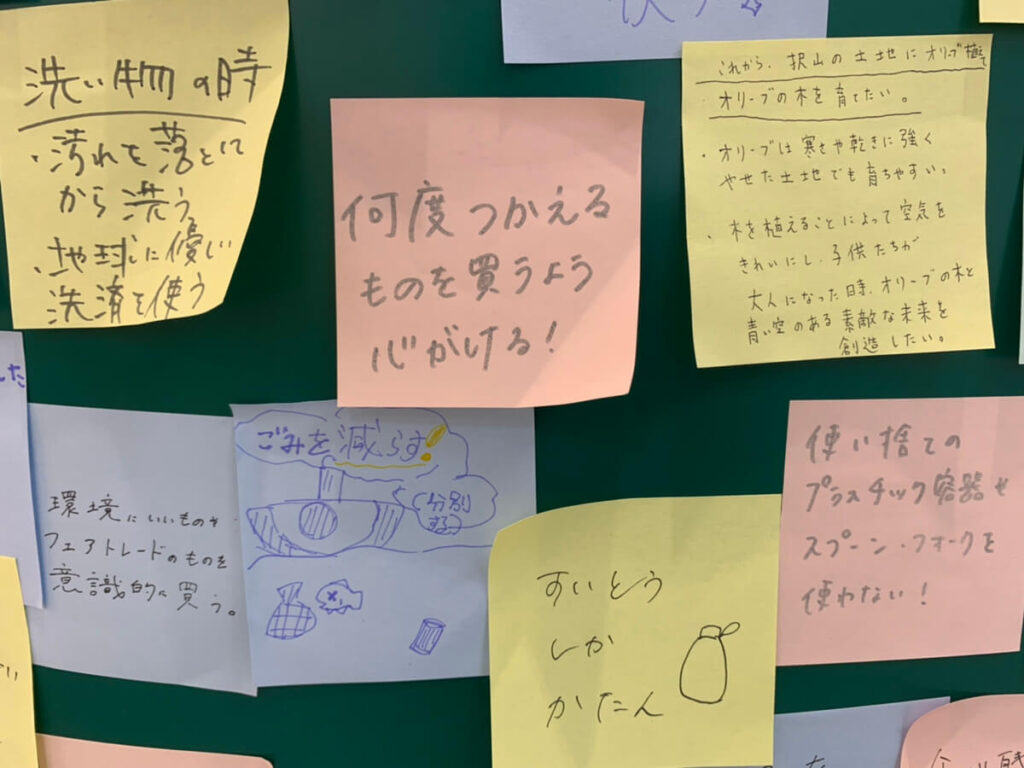 洗い物の時
・汚れを落として
から洗う
・地球に優しい
洗済を使う
何度つかえる
ものを買うよう
心がける!
これから、沢山の土地にオリーブ植えて
オリーブの木を育てたい。
・オリーブは寒さや乾きに強く
やせた土地でも育ちやすい。
・木を植えることによって空気を
きれいにし、子供たちが
大人になった時、オリーブの木と
青い空のある素敵な未来を
創造したい。
した
環境にいいものや
フェアトレードのものを
意識的に買う。
ごみを減らす!
分別
する
すいとう
しか
かたん
使い捨ての
プラスチック容器や
スプーン・フォークを
使わない!